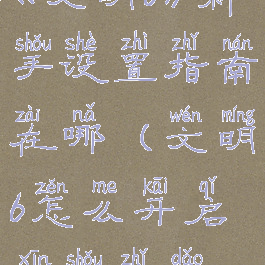 shǒu shè zhì zhǐ nán
手设置指南
zài nǎ wén míng
在哪(文明
zěn me kāi qǐ
6怎么开启
xīn shǒu zhǐ dǎo